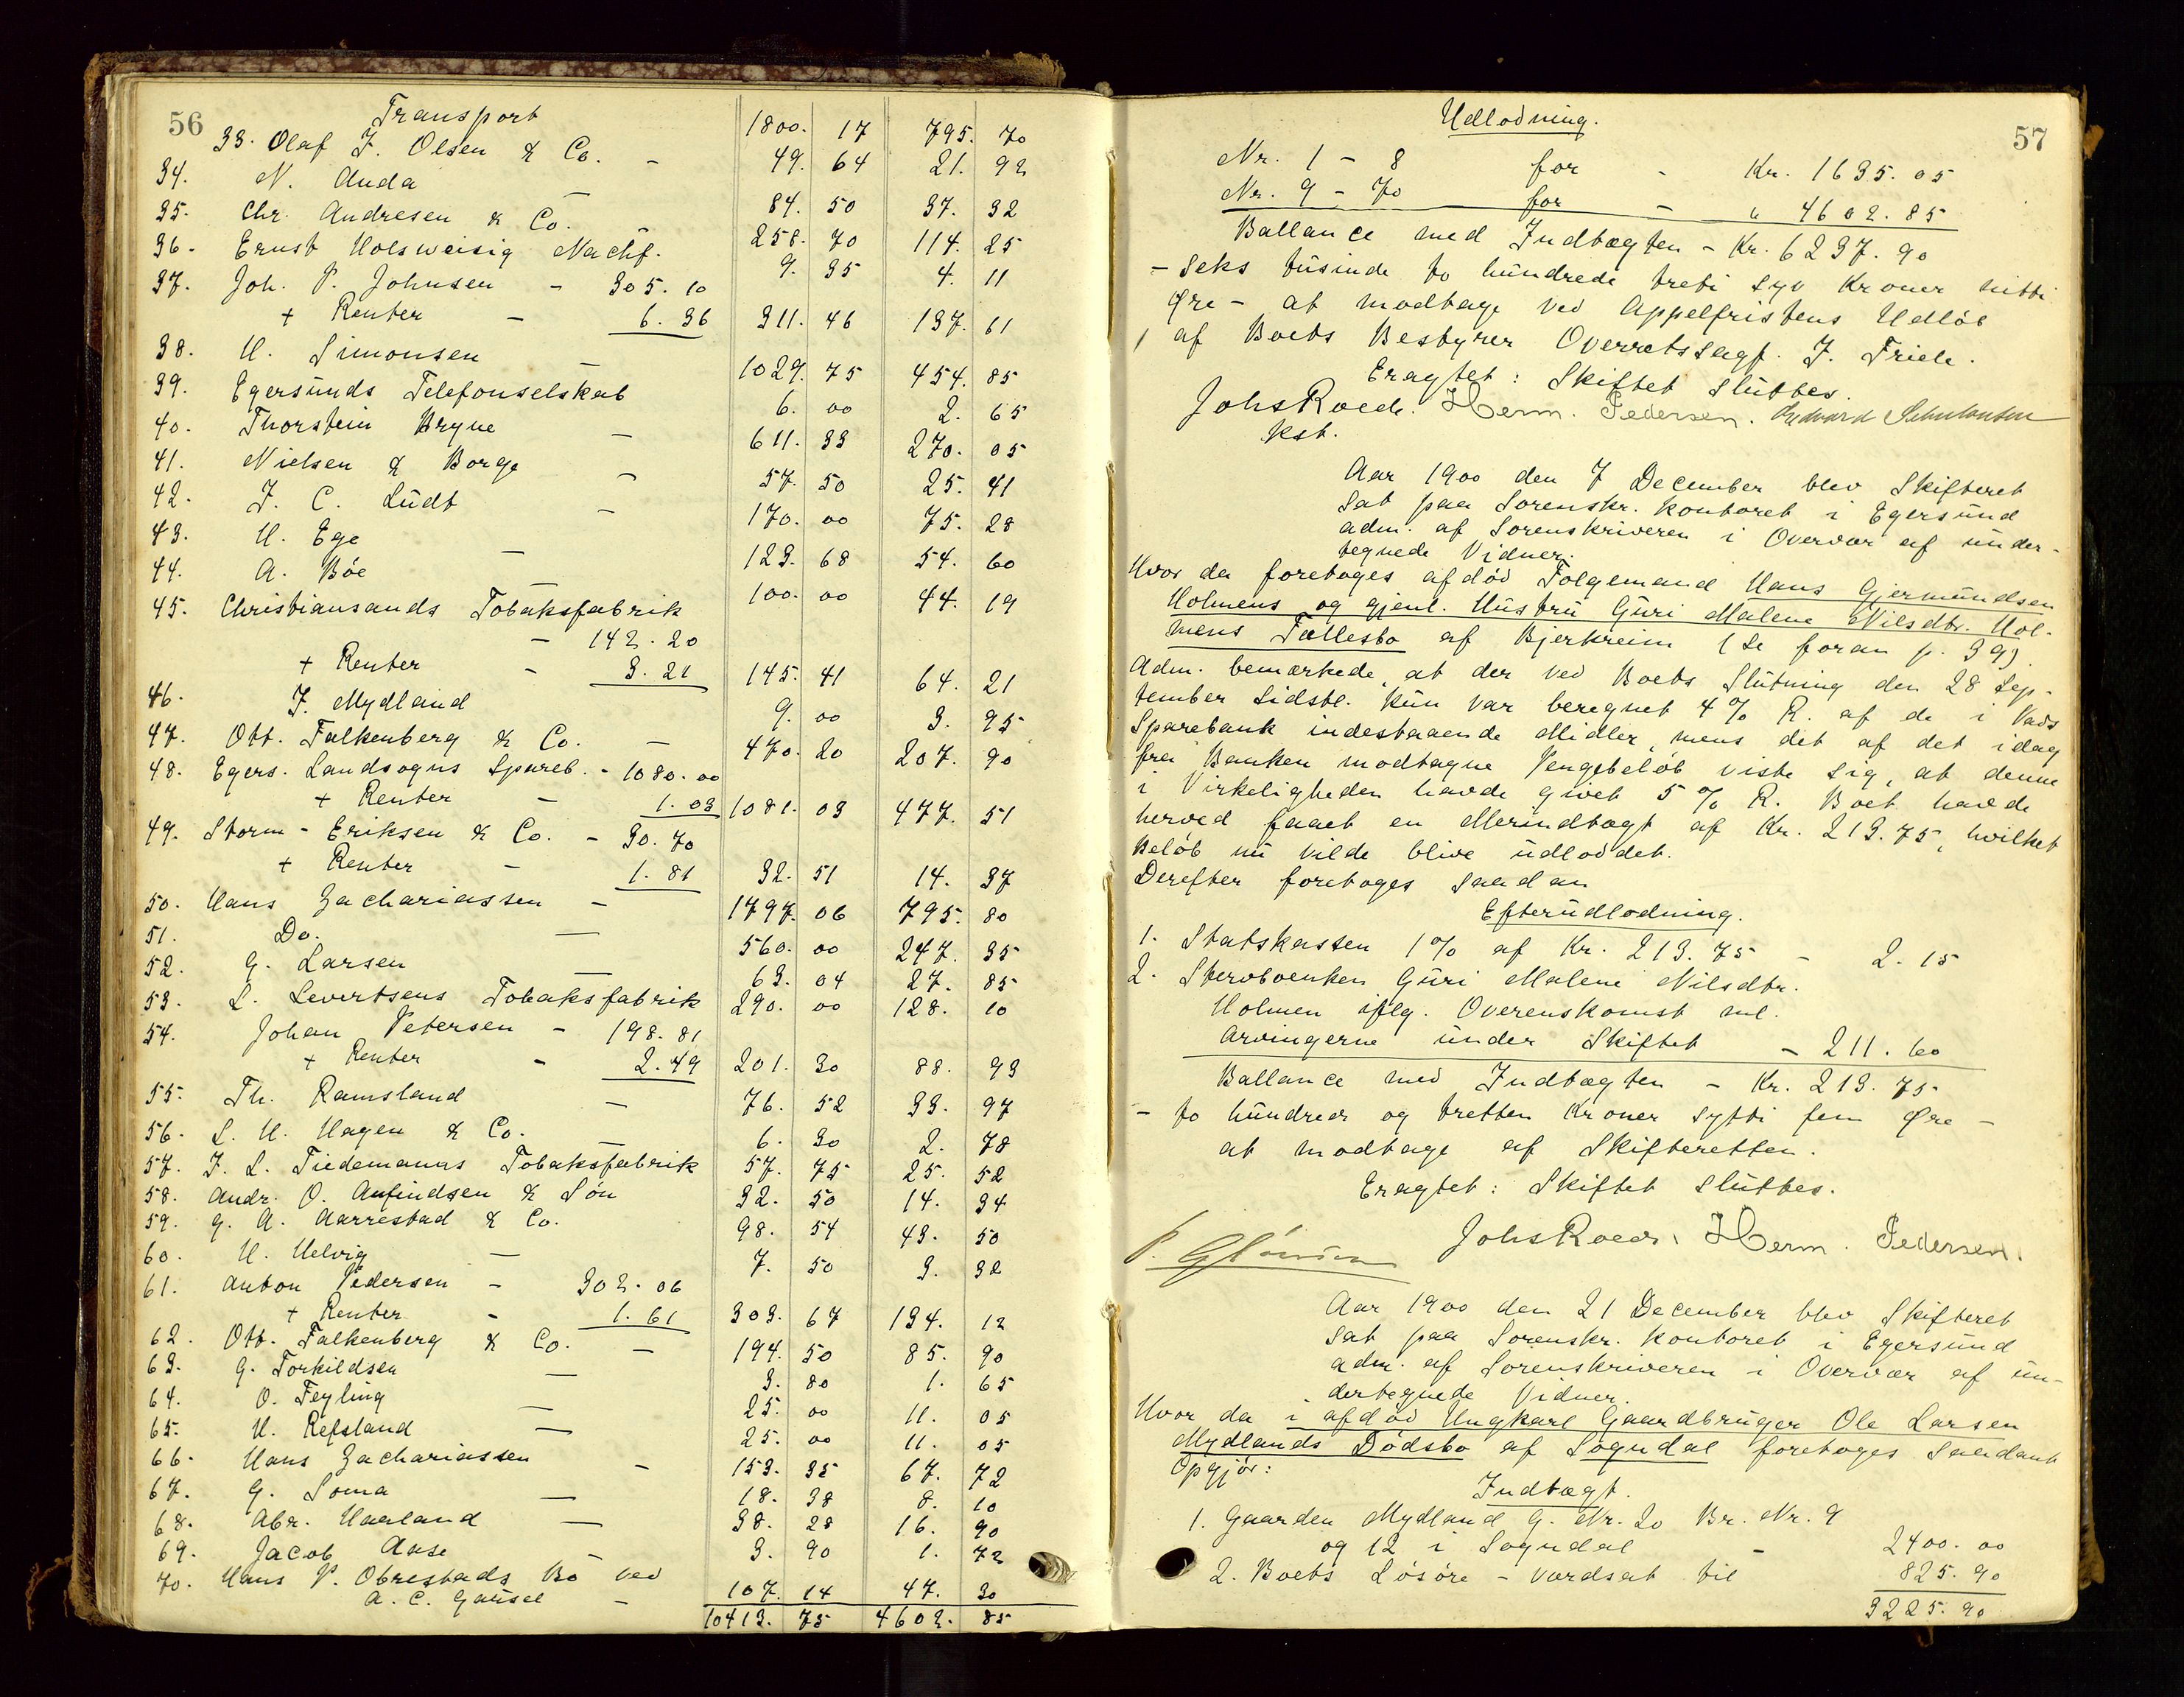 56
Transport 1800. 17 795. 70
33. Olaf J. Olsen & Co. - 49. 64 21. 92
34. N. Auda - 84. 50 37. 32
35. Chr. Andresen & Co. - 258. 70 114. 25
36. Ernst Holsweisig Nachf. 9. 35 4. 11
37. Joh. P. Johnsen - 305. 10
+ Renter - 6. 36 311. 46 137. 61
38. H. Simonsen - 1029. 75 454. 85
39. Egersunds Telefonselskab 6. 00 2. 65
40. Thorstein Bryne - 611. 33 270. 05
41. Nielsen & Borge - 57. 50 25. 41
42. J. C. Ludt - 170. 00 75. 28
43. H. Ege - 123. 68 54. 60
44. A. Böe - 100. 00 44. 19
45. Christiansands Tobaksfabrik
- 142. 20
+ Renter - 3. 21 145. 41 64. 21
46. J. Mydland 9. 00 3. 95
47. Ott. Falkenberg & Co. - 470. 20 207. 90
48. Egers. Landsogns Spareb. - 1080. 00
+ Renter - 1. 03 1081. 03 477. 51
49. Storm - Eriksen & Co. - 30. 70
+ Renter - 1. 81 32. 51 14. 37
50. Hans Zachariassen - 1797. 06 795. 80
51. Do. - 560. 00 247. 35
52. G. Larsen - 63. 04 27. 85
53. L. Levertsens Tobaksfabrik 290. 00 128. 10
54. Johan Petersen - 198. 81
+ Renter - 2. 49 201. 30 88. 93
55. Th. Ramsland - 76. 52 33. 97
56. S. H. Hagen & Co. - 6. 30 2. 78
57. J. L. Tiedemanns Tobaksfabrik 57. 75 25. 52
58. Andr. O. Anfindsen & Søn 32. 50 14. 34
59. G. A. Aarrestad & Co. 98. 54 43. 50
60. H. Helvig - 7. 50 3. 32
61. Anton Pedersen - 302. 06
+ Renter - 1. 61 303. 67 134. 12
62. Ott. Falkenberg & Co. - 194. 50 85. 90
63. G. Torkildsen - 3. 80 1. 65
64. O. Feyling - 25. 00 11. 05
65. H. Refsland - 25. 00 11. 05
66. Hans Zachariassen - 153. 35 67. 72
67. G. Soma - 18. 38 8. 10
68. Abr. Haaland - 38. 28 16. 90
69. Jacob Aase - 3. 90 1. 72
70. Hans P. Obrestads Bo ved
A. C. Gausel - 107. 14 47. 30
10413. 75 4602. 85
57
Udlodning.
Nr. 1 - 8 for - Kr. 1635. 05
Nr. 9 - 70 for - " 4602. 85
Ballance med Indtægten - Kr. 6237. 90
- Seks tusinde to hundrede treti syv Kroner nitti
Øre - at modtage ved Appelfristens Udløb
af Boets Bestyrer Overretssagf. J. Friele.
Eragtet: Skiftet sluttes.
Johs Roed. Herm. Pedersen.
Kst.
Aar 1900 den 7 December blev Skifteret
sat paa Sorenskr. kontoret i Egersund
adm. af Sorenskriveren i Overvær af under-
tegnede Vidner.
Hvor da foretoges afdød Følgemand Hans Gjermundsen
Holmens og gjenl. Hustru Guri Malene Nilsdtr. Hol-
mens Fællesbo af Bjerkreim (Se foran p. 39)
Adm. bemærkede, at der ved Boets Slutning den 28 Sep-
tember sidstl. kun var beregnet 4% R. af de i Vads
Sparebank indestaaende Midler, mens det af det idag
fra Banken modtagne Pengebeløb viste sig, at denne
i Virkeligheden havde givet 5% R. Boet havde
herved faaet en Merindtægt af Kr. 213. 75, hvilket
Beløb nu vilde blive udloddet.
Derefter foretoges saadan
Efterudlodning.
1. Statskassen 1% af Kr. 213. 75 - 2. 15
2. Stervboenken Guri Malene Nilsdtr.
Holmen iflg. Overenskomst ml.
Arvingerne under Skiftet - 211. 60
Ballance med Indtægten - Kr. 213. 75
- to hundrede og tretten Kroner sytti fem Øre -
at modtage af Skifteretten.
Eragtet: Skiftet sluttes.
Johs Roed. Herm. Pedersen.
Aar 1900 den 21 December blev Skifteret
sat paa Sorenskr. kontoret i Egersund
adm. af Sorenskriveren i Overvær af un-
dertegnede Vidner.
Hvor da i afdød Ungkarl Gaardbruger Ole Larsen
Mydlands Dødsbo af Sogndal foretoges saadant
Opgjør:
Indtægt.
1. Gaarden Mydland G. Nr. 20 Br. Nr. 9
og 12 i Sogndal - 2400. 00
2. Boets Løsøre - vurdsat til 825. 90
3225. 90